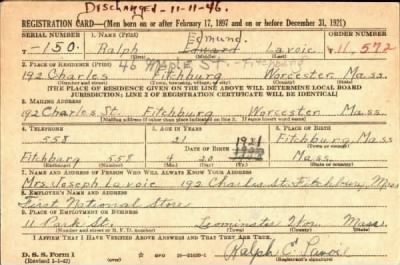 Discharged - 11-11-46.
REGISTRATION CARD—(Men born on or after February 17, 1897 and on or before December 31, 1921)
SERIAL NUMBER 1. NAME (Print) ORDER NUMBER
Edmund.
T-150. Ralph Edward Lavoie 11,572
(First) (Middle) (Last)
46 Maple St.
2. PLACE OF RESIDENCE (Print)
192 Charles Fitchburg Worcester Mass.
(Number and street) (Town, township, village, or city) (County) (State)
[THE PLACE OF RESIDENCE GIVEN ON THE LINE ABOVE WILL DETERMINE LOCAL BOARD
JURISDICTION; LINE 2 OF REGISTRATION CERTIFICATE WILL BE IDENTICAL]
3. MAILING ADDRESS
192 Charles St. Fitchburg Worcester Mass
[Mailing address if other than place indicated on line 2. If same insert word same]
4. TELEPHONE 5. AGE IN YEARS 6. PLACE OF BIRTH
558 21 Fitchburg, Mass
DATE OF BIRTH 1921
Fitchburg 558 9 20 Mass.
(Exchange) (Number) (Mo.) (Day) (Yr.) (State or country)
7. NAME AND ADDRESS OF PERSON WHO WILL ALWAYS KNOW YOUR ADDRESS
Mrs. Joseph Lavoie 192 Charles St. Fitchburg, Mass
8. EMPLOYER'S NAME AND ADDRESS
First National Store
9. PLACE OF EMPLOYMENT OR BUSINESS
11 Park St. Leominster Wor. Mass.
(Number and street or R. F. D. number) (Town) (County) (State)
I AFFIRM THAT I HAVE VERIFIED ABOVE ANSWERS AND THAT THEY ARE TRUE.
D. S. S. Form 1
(Revised 1-1-42) (over)
Ralph E. Lavoie
(Registrant's signature)